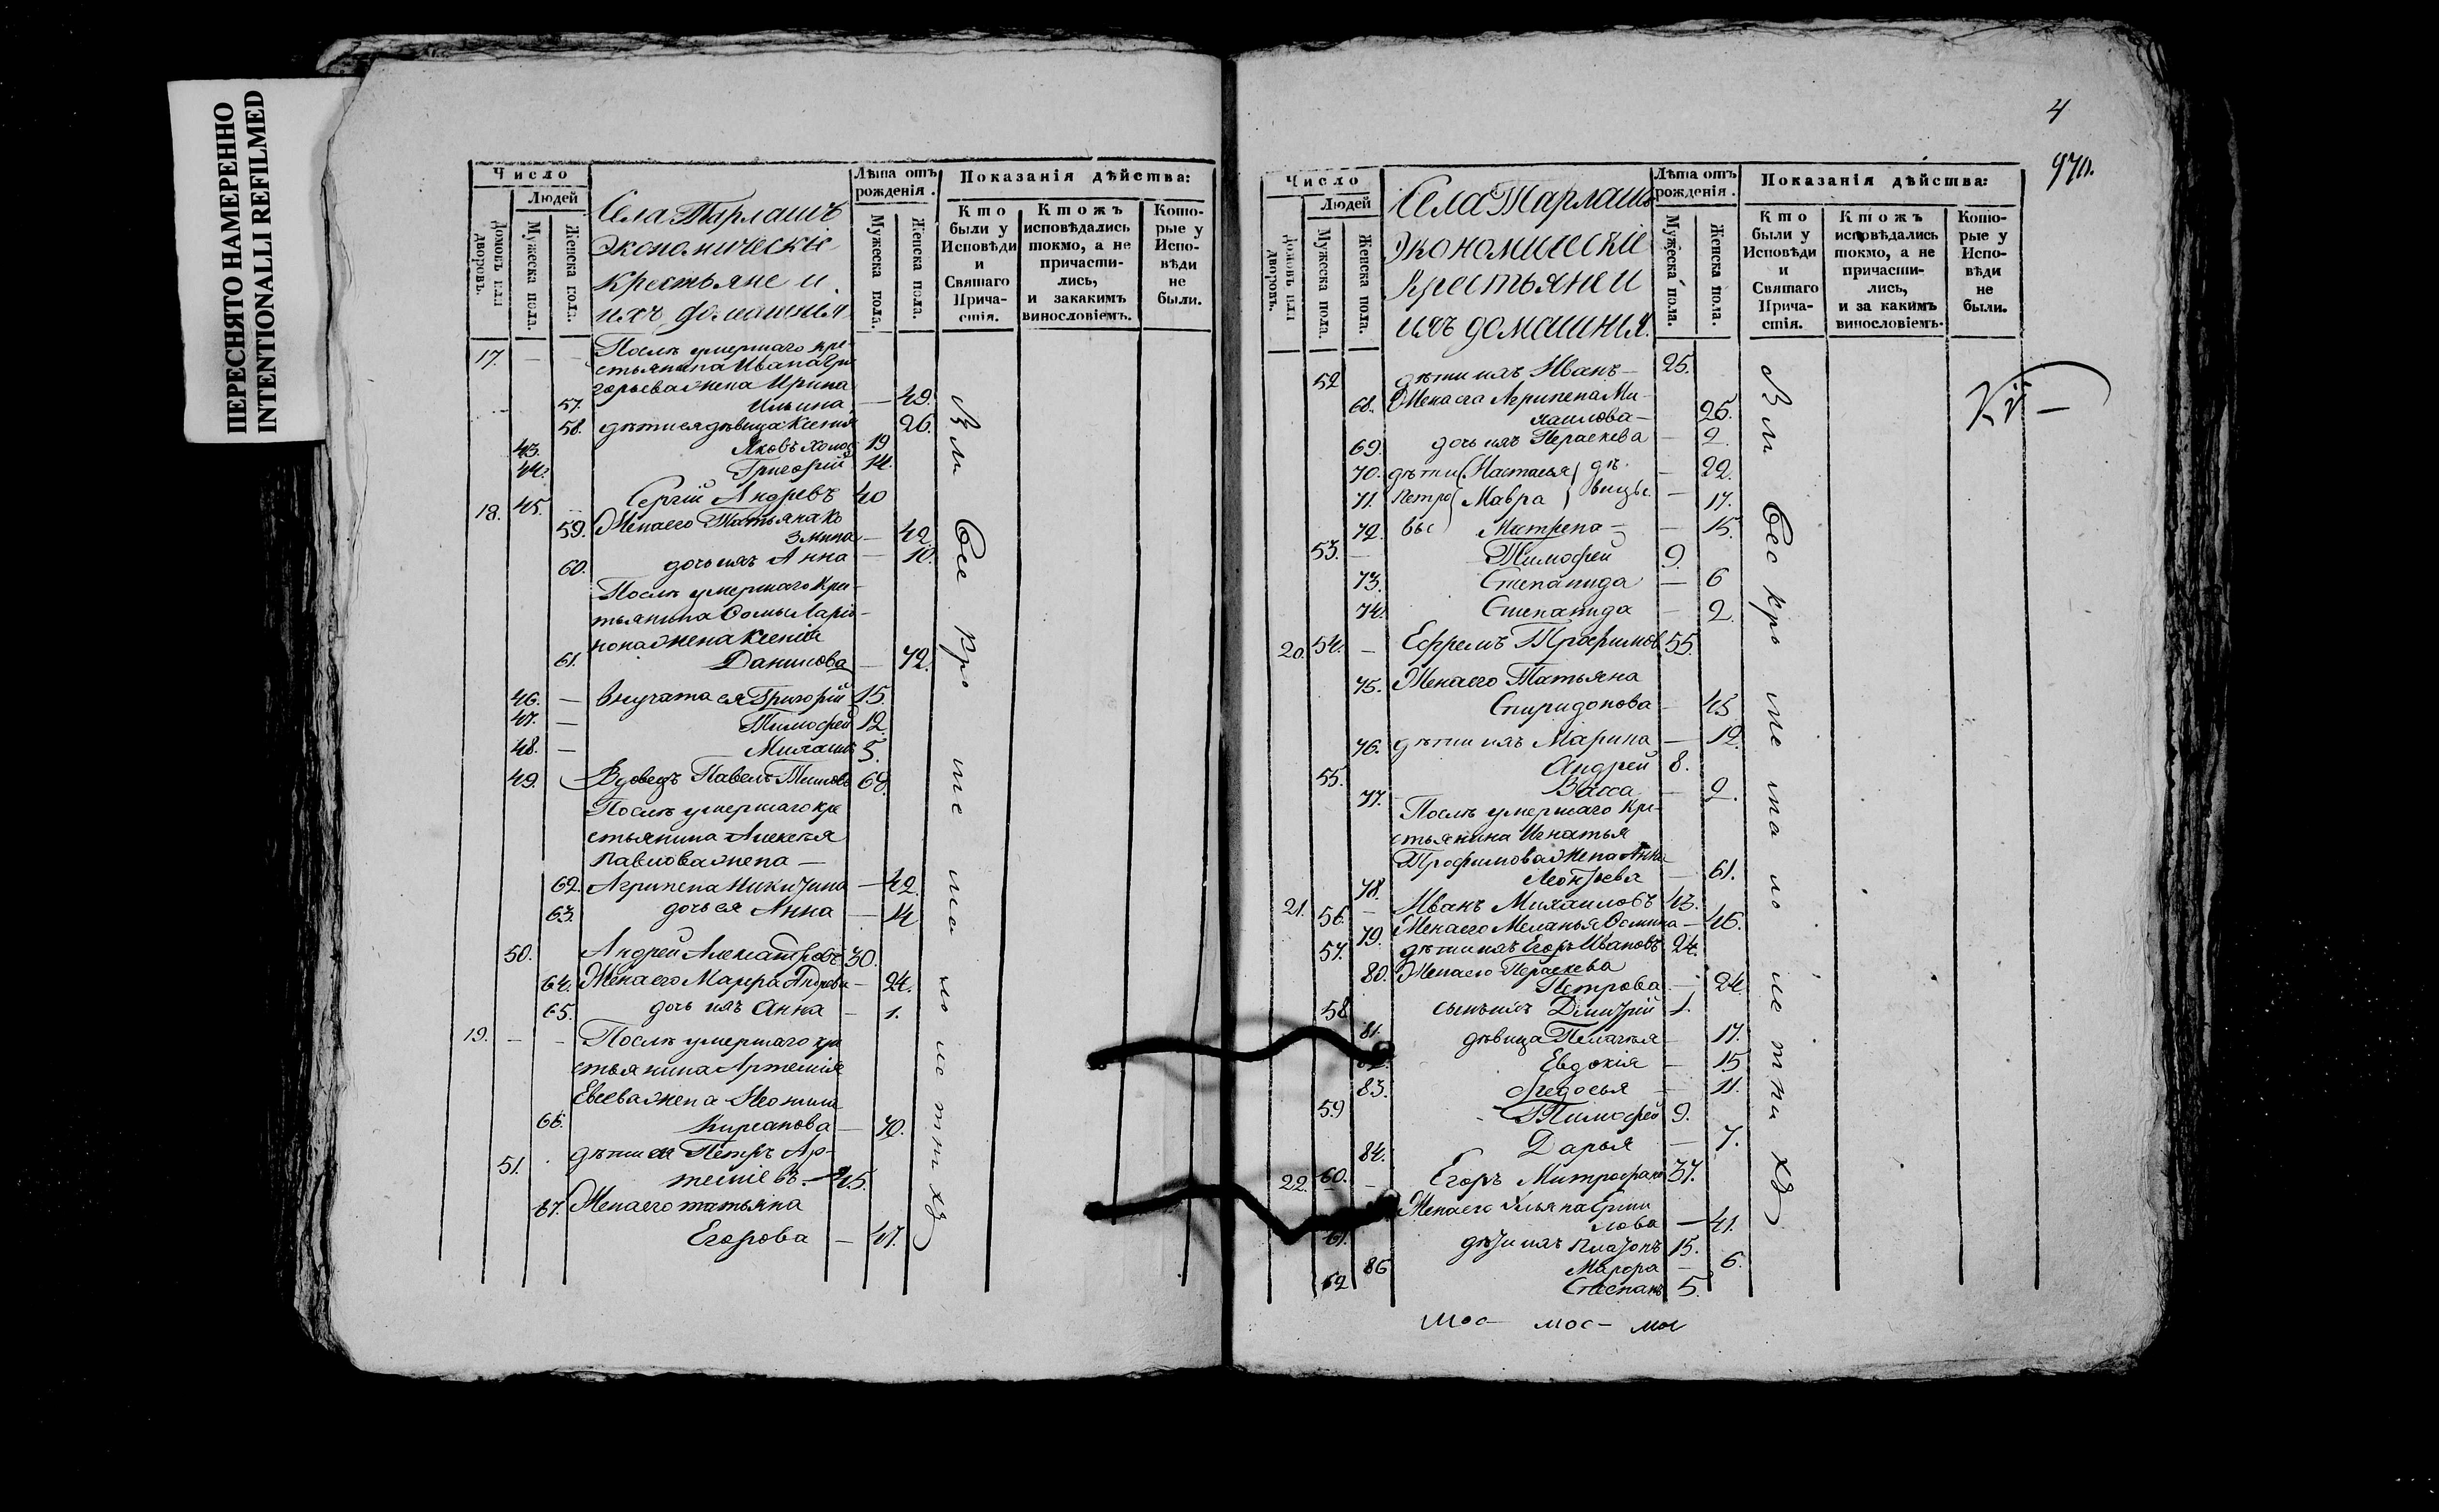 ПЕРЕСНЯТО НАМЕРЕННО
INTENTIONALLI REFILMED
Число
Людей
Домовъ или дворовъ.
Мужеска пола.
Женска пола.
Села Тарлашъ
Экономическіе
крестьяне и
ихъ домашнія
Лѣта отъ рожденія.
Мужеска пола.
Женска пола.
Показанія дѣйства:
Кто были у Исповѣди и Святаго Причастія.
Ктожъ исповѣдались токмо, а не причастились, и закакимъ винословіемъ.
Которые у Исповѣди не были.
17. — — Послѣ умершаго кре-
стьянина Ивана Гри
горьева жена Ирина
57. Ильина — 49.
58. дѣти ея дѣвица Ксенія 26
43. Яковъ холос 19
44. Григорій 14.
18. 45. Сергій Андревъ 40
59. Жена его Татьяна Ко
змина — 42.
60. дочь ихъ Анна — 10.
Послѣ умершаго Крес-
тьянина Ѳомы Ларіо-
нова жена Ксенія
61. Данилова — 72.
46. — внучата ея Григорій 15.
47. — Тимофей 12.
48. — Михаилъ 5.
49. Вдовецъ Павелъ 68.
Послѣ умершаго кре
стьянина Алексѣя
Павлова жена —
62. Агрипена Никитина — 42.
63. дочь ея Анна — 14
50. Андрей Александровъ 30.
64. Жена его Марфа — 24.
65. дочь ихъ Анна — 1.
19. — — Послѣ умершаго кре
стьянина Артемія
Евсева жена
66. Кирсанова — 70.
51. дѣти ея Петръ Ар-
теміевъ. — 45.
67. Жена его татьяна
Егорова — 47.
Вм Все кро ме ма ло ле тн ихъ
4
970.
Число
Людей
Домовъ или дворовъ.
Мужеска пола.
Женска пола.
Села Тарлашъ
Экономическіе
крестьяне и
ихъ домашнія.
Лѣта отъ рожденія.
Мужеска пола.
Женска пола.
Показанія дѣйства:
Кто были у Исповѣди и Святаго Причастія.
Ктожъ исповѣдались токмо, а не причастились, и за какимъ винословіемъ.
Которые у Исповѣди не были.
52 дѣти ихъ Иванъ — 25.
68. Жена его Агрипена Ми-
хаилова — 26.
69. дочь ихъ Пераскева — 2.
70. дѣти Настасья дѣ- — 22.
71. Петро Мавра вицы — 17.
72. вы Матрена — — 15.
53. — Тимофей 9.
73. Степанида — 6
74. Степанида — 2.
20. 54. — Ефремъ Трофимов 55.
75. Жена его Татьяна
Спиридонова — 45
76. дѣти ихъ Марина — 12.
55. Андрей 8.
77. Васса — 2.
Послѣ умершаго Кре-
стьянина Игнатья
Трофимова жена Анна
78. Леонтьева — 61.
21. 56. — Иванъ Михаиловъ 43.
79. Жена его Меланья Ѳомина — 46.
57. дѣти ихъ Егоръ Ивановъ 24.
80. Жена его Пераскева
Петрова — 24
58. сынъ ихъ Димитрій 1.
81. дѣвица Пелагея — 17.
Евдокія — 15
83. Ѳедосья — 11.
59 Тимофей 9.
84. Дарья — 7.
22. 60. — Егоръ Митрофан 37.
Жена его Ульяна
— 41.
61. дѣти ихъ Платонъ 15.
86 Марфа — 6.
62 Степанъ 5.
Вм Вес кро ме ма ло ле тни хъ
мос — мос — мос